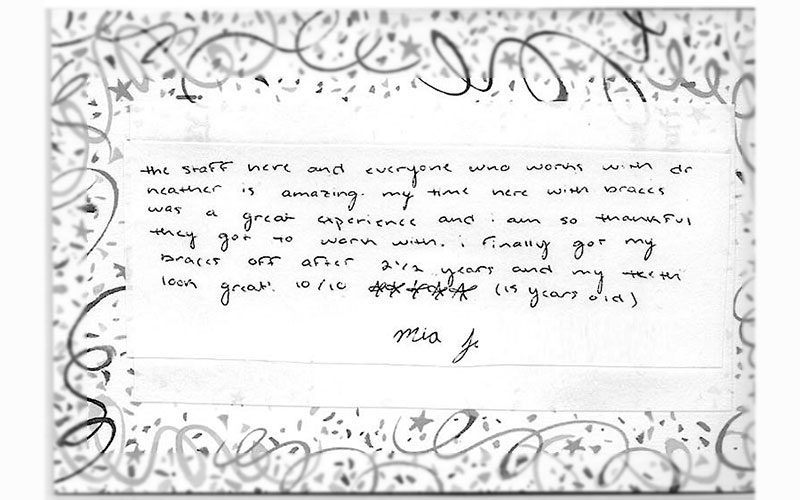 the staff here and everyone who works with dr
heather is amazing. my time here with braces
was a great experience and i am so thankful
they got to work with. i finally got my
braces off after 2 1/2 years and my teeth
look great! 10/10 ☆☆☆☆☆ (15 years old)
Mia J.